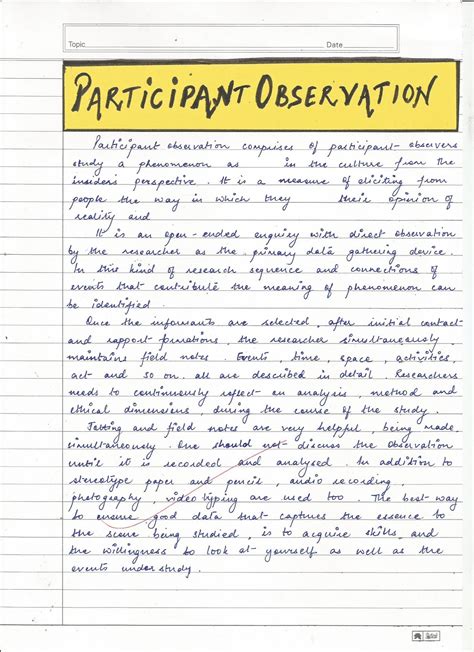 Topic
Date
PARTICIPANT OBSERVATION
Participant observation comprises of participant-observers
study a phenomenon as in the culture from the
insiders perspective. It is a measure of eliciting from
people the way in which they their opinion of
reality and
It is an open-ended enquiry with direct observation
by the researcher as the primary data gathering device.
In this kind of research sequence and connections of
events that contribute the meaning of phenomenon can
be identified.
Once the informants are selected, after initial contact
and rapport formations, the researcher simultaneously
maintains field notes. Events, time, space, activities,
act and so on, all are described in detail. Researchers
needs to continuously reflect on analysis, method and
ethical dimensions, during the course of the study.
Jotting and field notes are very helpful, being made
simultaneously. One should not discuss the observation
until it is recorded and analysed. In addition to
stereotype paper and pencil, audio recording,
photography, video typing are used too. The best way
to ensure good data that captures the essence to
the scene being studied, is to acquire skills and
the willingness to look at yourself as well as the
events under study.